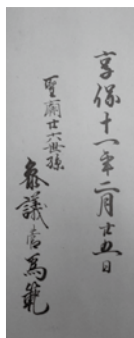 享保十一年二月廿五日
聖廟廿六世孫
参議菅為範